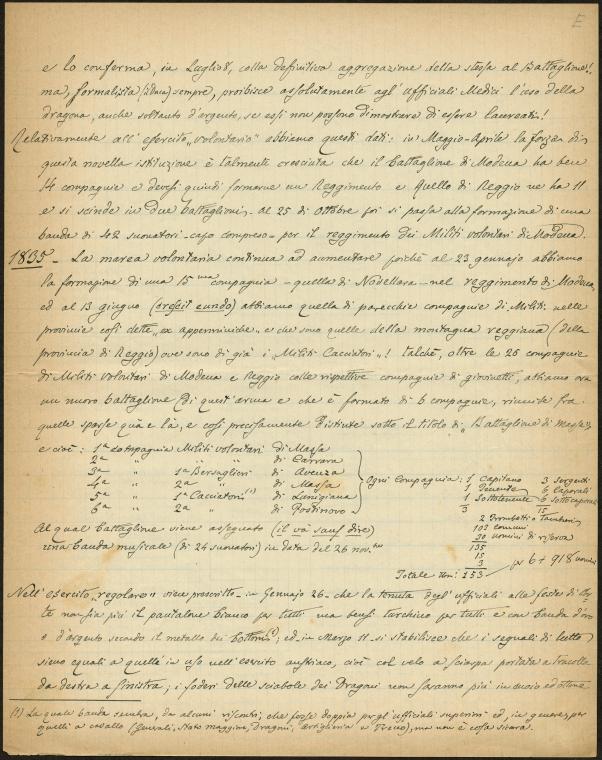 E
e lo conferma, in Luglio 8, colla definitiva aggregazione della stessa al Battaglione!.
ma, formalista sempre, proibisce assolutamente agl' ufficiali Medici l'uso della
dragona, anche soltanto d'argento, se essi non possono dimostrare di essere laureati!
Relativamente all'esercito "volontario" abbiamo questi dati: in Maggio-Aprile la forza di
questa novella istituzione è talmente cresciuta che il battaglione di Modena ha ben
14 compagnie e devesi quindi formarne un Reggimento e quello di Reggio ne ha 11
e si scinde in due battaglioni, - al 25 di ottobre poi si passa alla formazione di una
banda di 42 suonatori - capo compreso - per il reggimento dei Militi volontari di Modena.
1835 - La marea volontaria continua ad aumentare poichè al 23 gennajo abbiamo
la formazione di una 15ma compagnia - quella di Nodellara - nel reggimento di Modena,
ed al 13 giugno (crescit eundo) abbiamo quella di parecchie compagnie di Militi nelle
provincie così dette, "ex appenniniche" e che sono quelle della montagna reggiana (della
provincia di Reggio) ove sono di già i "Militi Cacciatori"! talchè, oltre le 25 compagnie
di Militi volontari di Modena e Reggio colle rispettive compagnie di giovinetti, abbiamo ora
un nuovo battaglione di quest'arma e che è formato di 6 compagnie, riunite fra
quelle sparse quà e là, e così precisamente distinte sotto il titolo di "Battaglione di Massa";
e cioè: 1a compagnia Militi volontari di Massa
2a " " " di Carrara
3a " 1a Bersaglieri di Avenza
4a " 2a " di Massa
5a " 1a Cacciatori (1) di Lunigiana
6a " 2a " di Fosdinovo
Ogni compagnia: 1 Capitano 3 Sergenti
1 Tenente 6 Caporali
1 Sottotenente 6 sottocaporali
3 15
2 Trombetti o Tamburi
103 comuni
30 uomini di riserva
135
15
3
Totale Uni: 153 per 6 + 918 uomini
Al qual battaglione viene assegnato (il va sans dire)
una banda musicale (di 24 suonatori) in data del 26 nov.
Nell'esercito "regolare" vien prescritto - in Gennajo 26 - che la tenuta degl'ufficiali alle feste di Cor-
te non sia più il pantalone bianco per tutti ma bensì turchino per tutti e con banda d'oro
o d'argento secondo il metallo dei bottoni (1); ed in Marzo 11 - si stabilisce che i segnali di lutto
sieno eguali a quelle in uso nell'esercito austriaco, cioè col velo a sciarpa portata a tracolla
da destra a sinistra; i foderi delle sciabole dei Dragoni non saranno più in cuoio ed ottone
(1) La quale banda sembra, da alcuni riscontri, che fosse doppia per gl'ufficiali superiori ed, in genere, per
quelli a cavallo (Generali, Stato maggiore, Dragoni, artiglieria e Treno), ma non è cosa sicura.